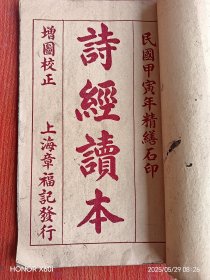 民國甲寅年精繕石印
詩經讀本
增圖校正
上海章福記發行
HONOR X60i
2025/05/29 08:26